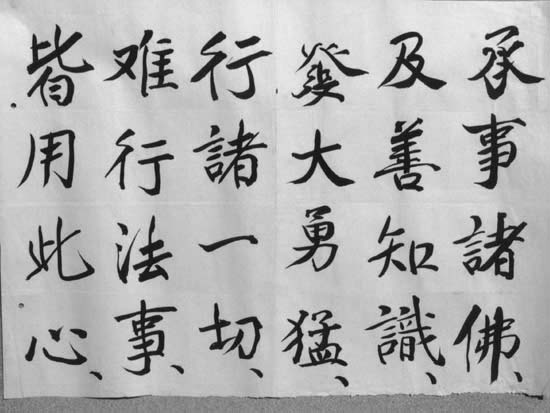 承事諸佛、
及善知識、
發大勇猛、
行諸一切、
难行法事、
皆用此心、